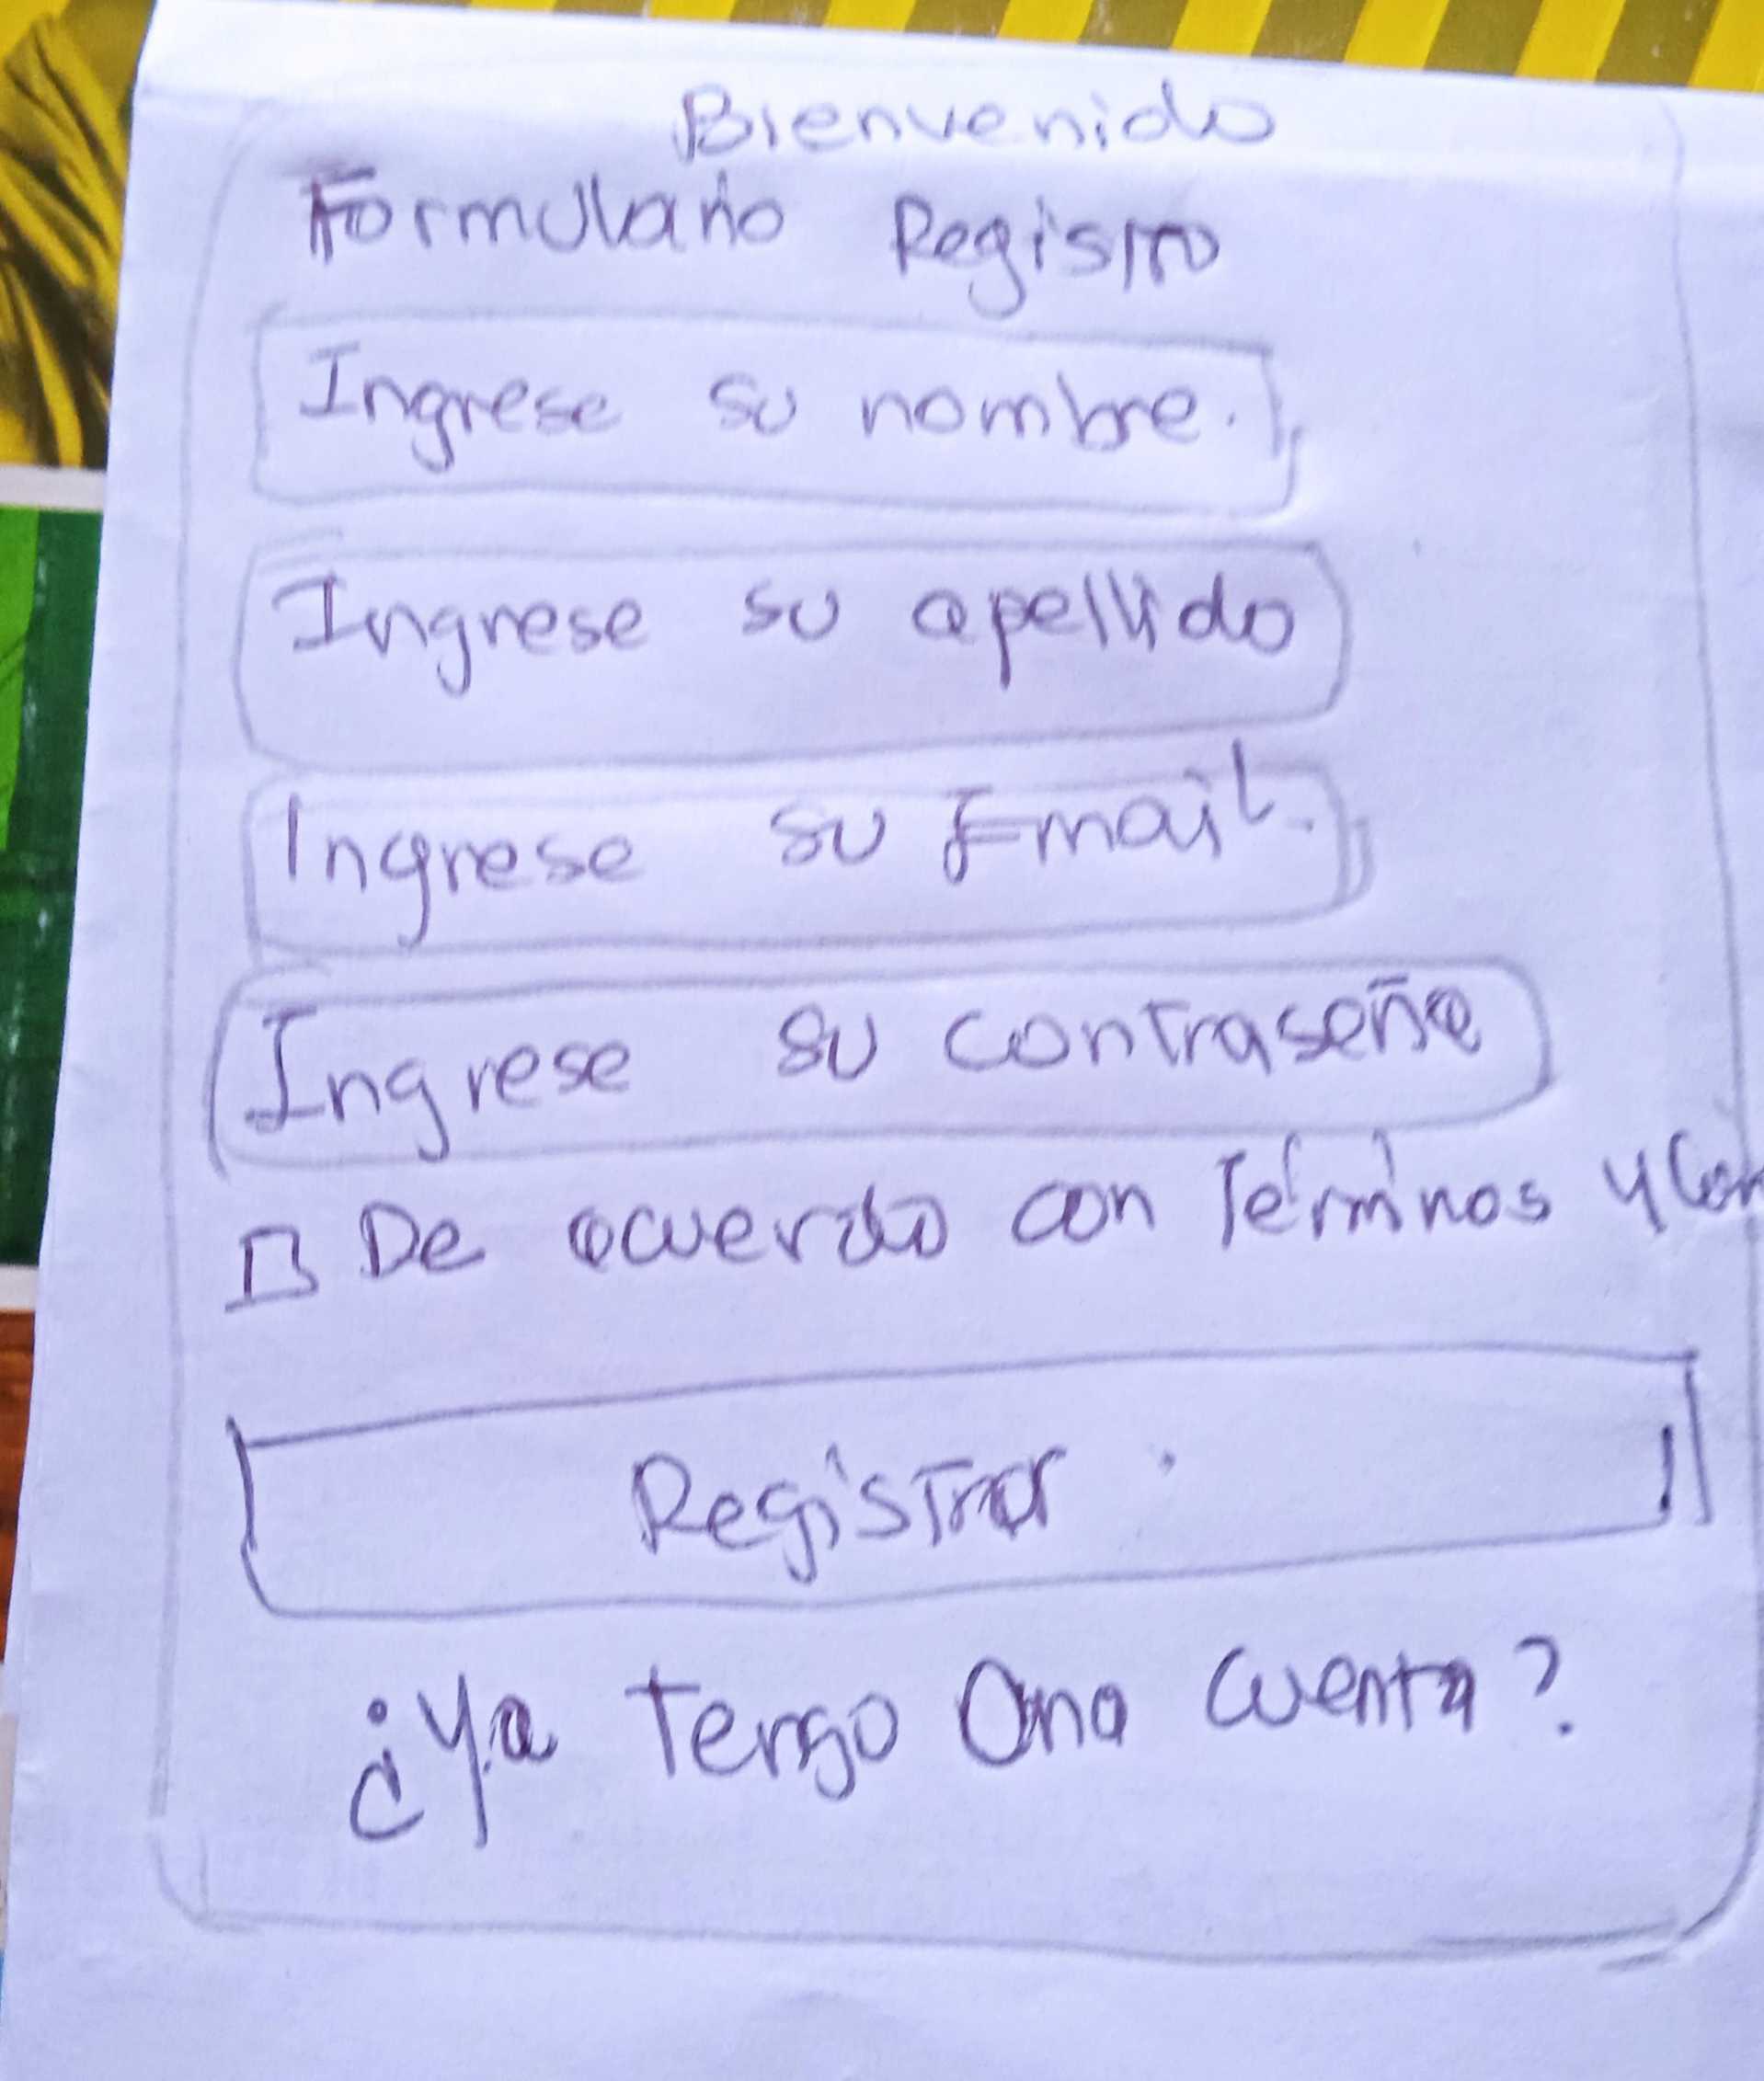 Bienvenido
Formulario Registro
Ingrese su nombre.
Ingrese su apellido
Ingrese su Email.
Ingrese su contraseña
De acuerdo con Términos y Con
Registrar
¿Ya tengo una cuenta?